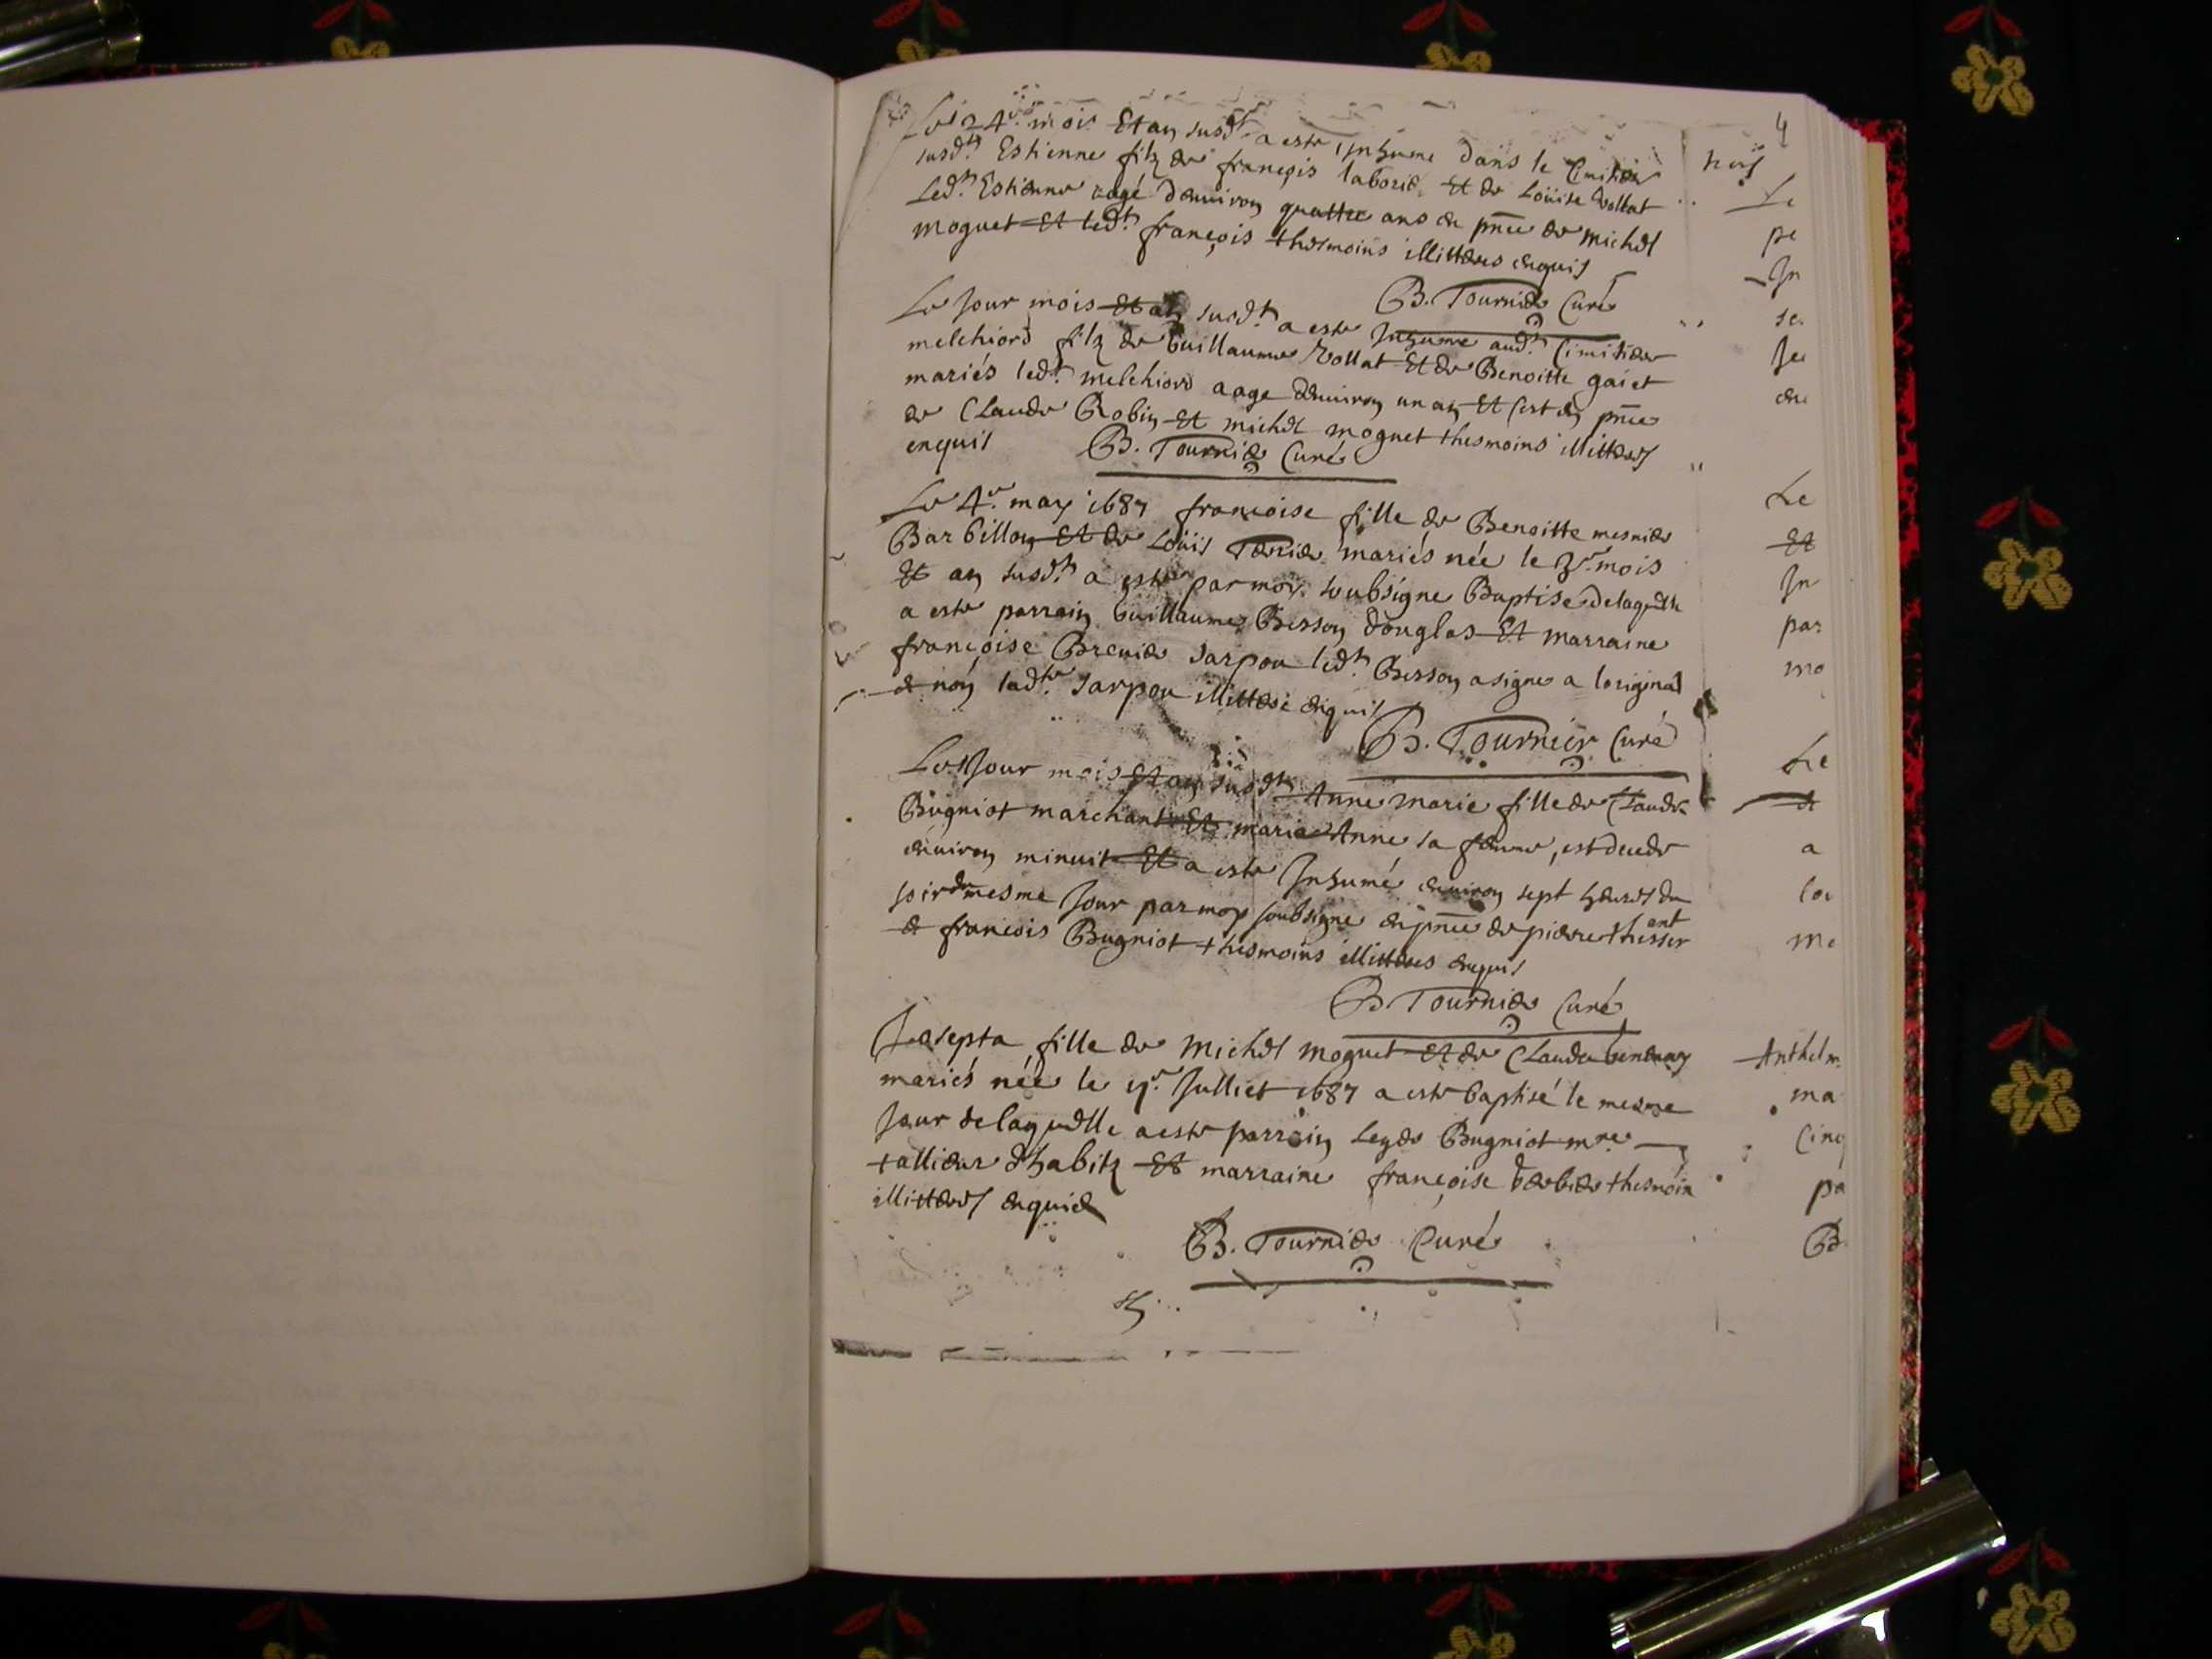 4
Le 24e mois Et an susdt a este Inhumé dans le Cimitier
susdt Estienne filz de françois laborie Et de Loüise Vollat
Ledt Estienne aagé denuiron quattre ans en pnce de michel
moguet Et ledt françois thesmoins illitteres enquis
B. Tournier Curé
Le Jour mois Et an susdt a este Inhumé audt Cimitier
melchiord filz de Guillaume Vollat Et de Benoitte gaiet
mariés ledt melchiord aage denuiron un an Et cest en pnce
de Claude Robin Et michel moguet thesmoins illitteres
enquis B. Tournier Curé
Le 4e may 1687 francoise fille de Benoitte mesnier
Barbillon Et de Loüis mariés née le 3e mois
Et an susdt a este par moy soubsigne Baptisé de laquelle
a este parrain Guillaume Bisson douglas Et marraine
françoise Breuier Sarpou ledt Bisson a signe a loriginal
& non ladte Sarpou illitteré enquis
B. Tournier Curé
Le Jour mois Et an susdt Anne marie fille de Claude
Bugniot marchant Et marie Anne sa femme, est decede
enuiron minuit Et a este Inhumé enuiron sept heures du
soir du mesme Jour par moy soubsigne en pnce de pierre
& francois Bugniot thesmoins illitteres enquis
B. Tournier Curé
Josepta fille de Michel moguet Et de Claude
mariés née le Julliet 1687 a este baptisé le mesme
Jour de laquelle a este parrain Bugniot mre
tallieur dhabitz Et marraine françoise thesmoin
illitteres enquis
B. Tournier Curé
Le
pe
In
se
en
Le
Et
In
par
mo
Le
&
a
Anthelm
ma
Cinq
pa
B